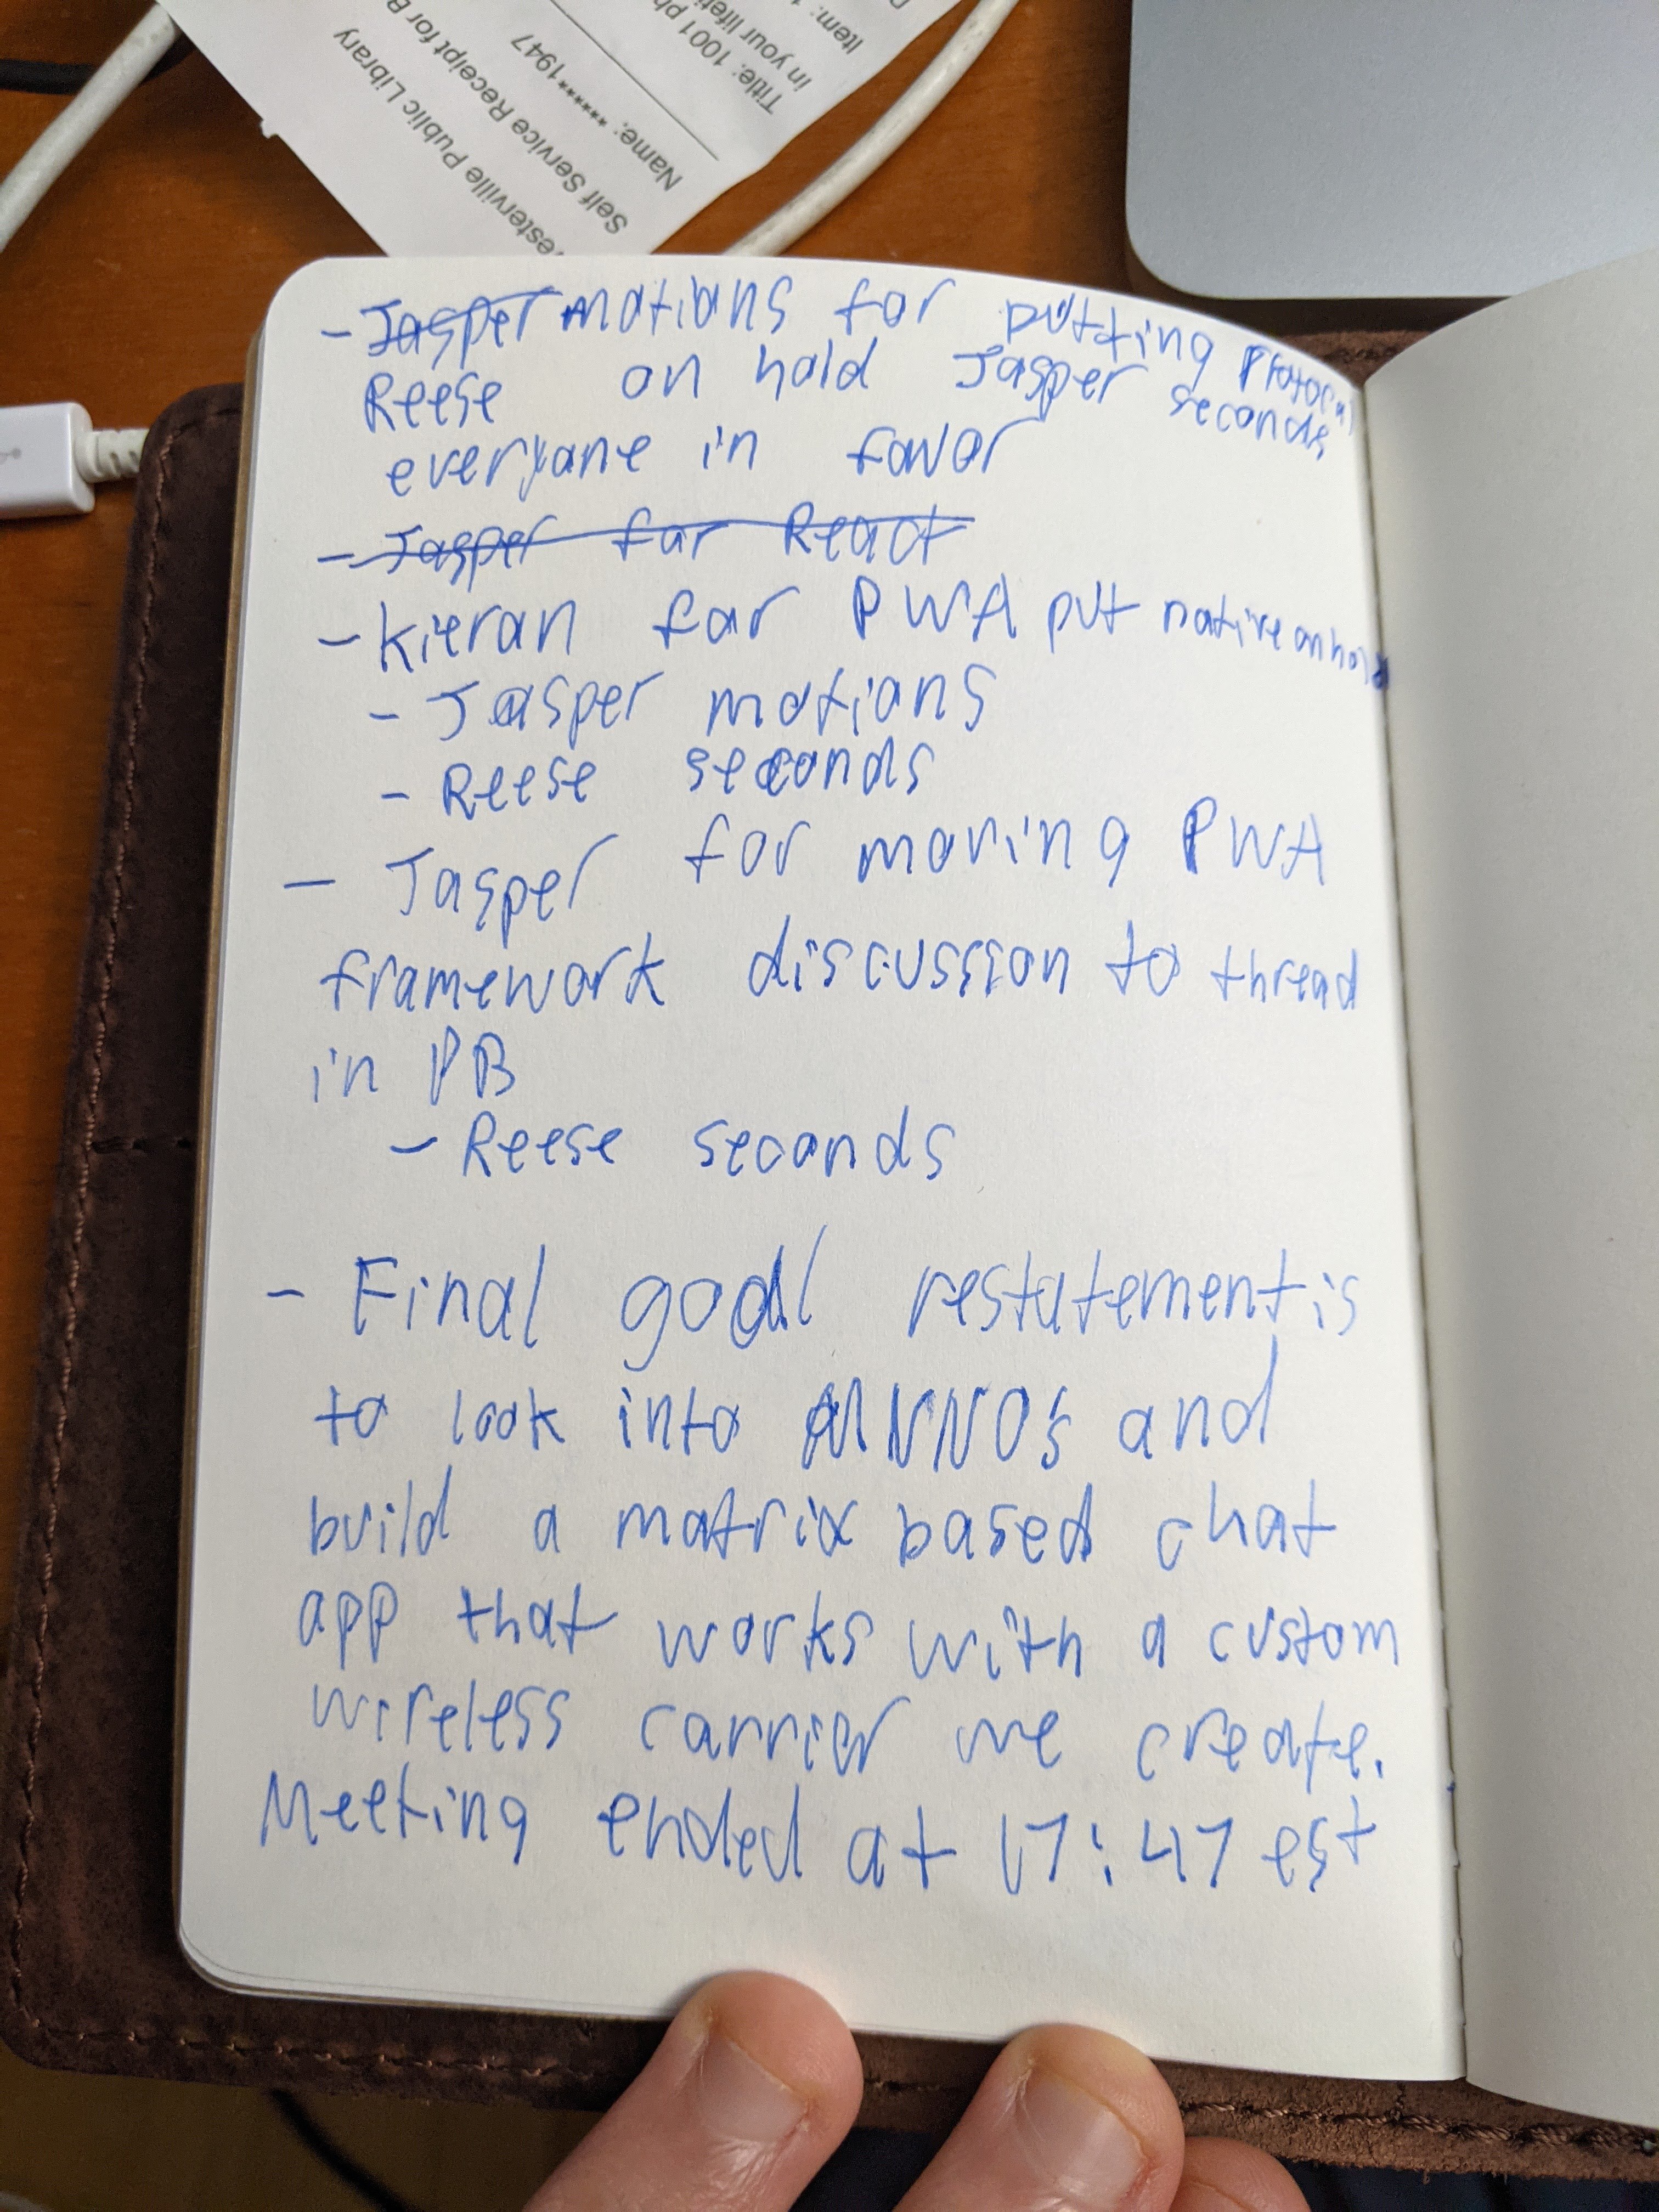 esterville Public Library
Self Service Receipt for B
Name: ******1947
Title: 1001 ph
in your lifeti
Item: 1
- Jasper motions for putting Protocol
Reese on hold Jasper seconds
everyone in favor
- Jasper for React
- Kieran for PWA put native on hold
- Jasper motions
- Reese seconds
- Jasper for moving PWA
framework discussion to thread
in PB
- Reese seconds
- Final goal restatement is
to look into MVNOs and
build a matrix based chat
app that works with a custom
wireless carrier we create.
Meeting ended at 17:47 est